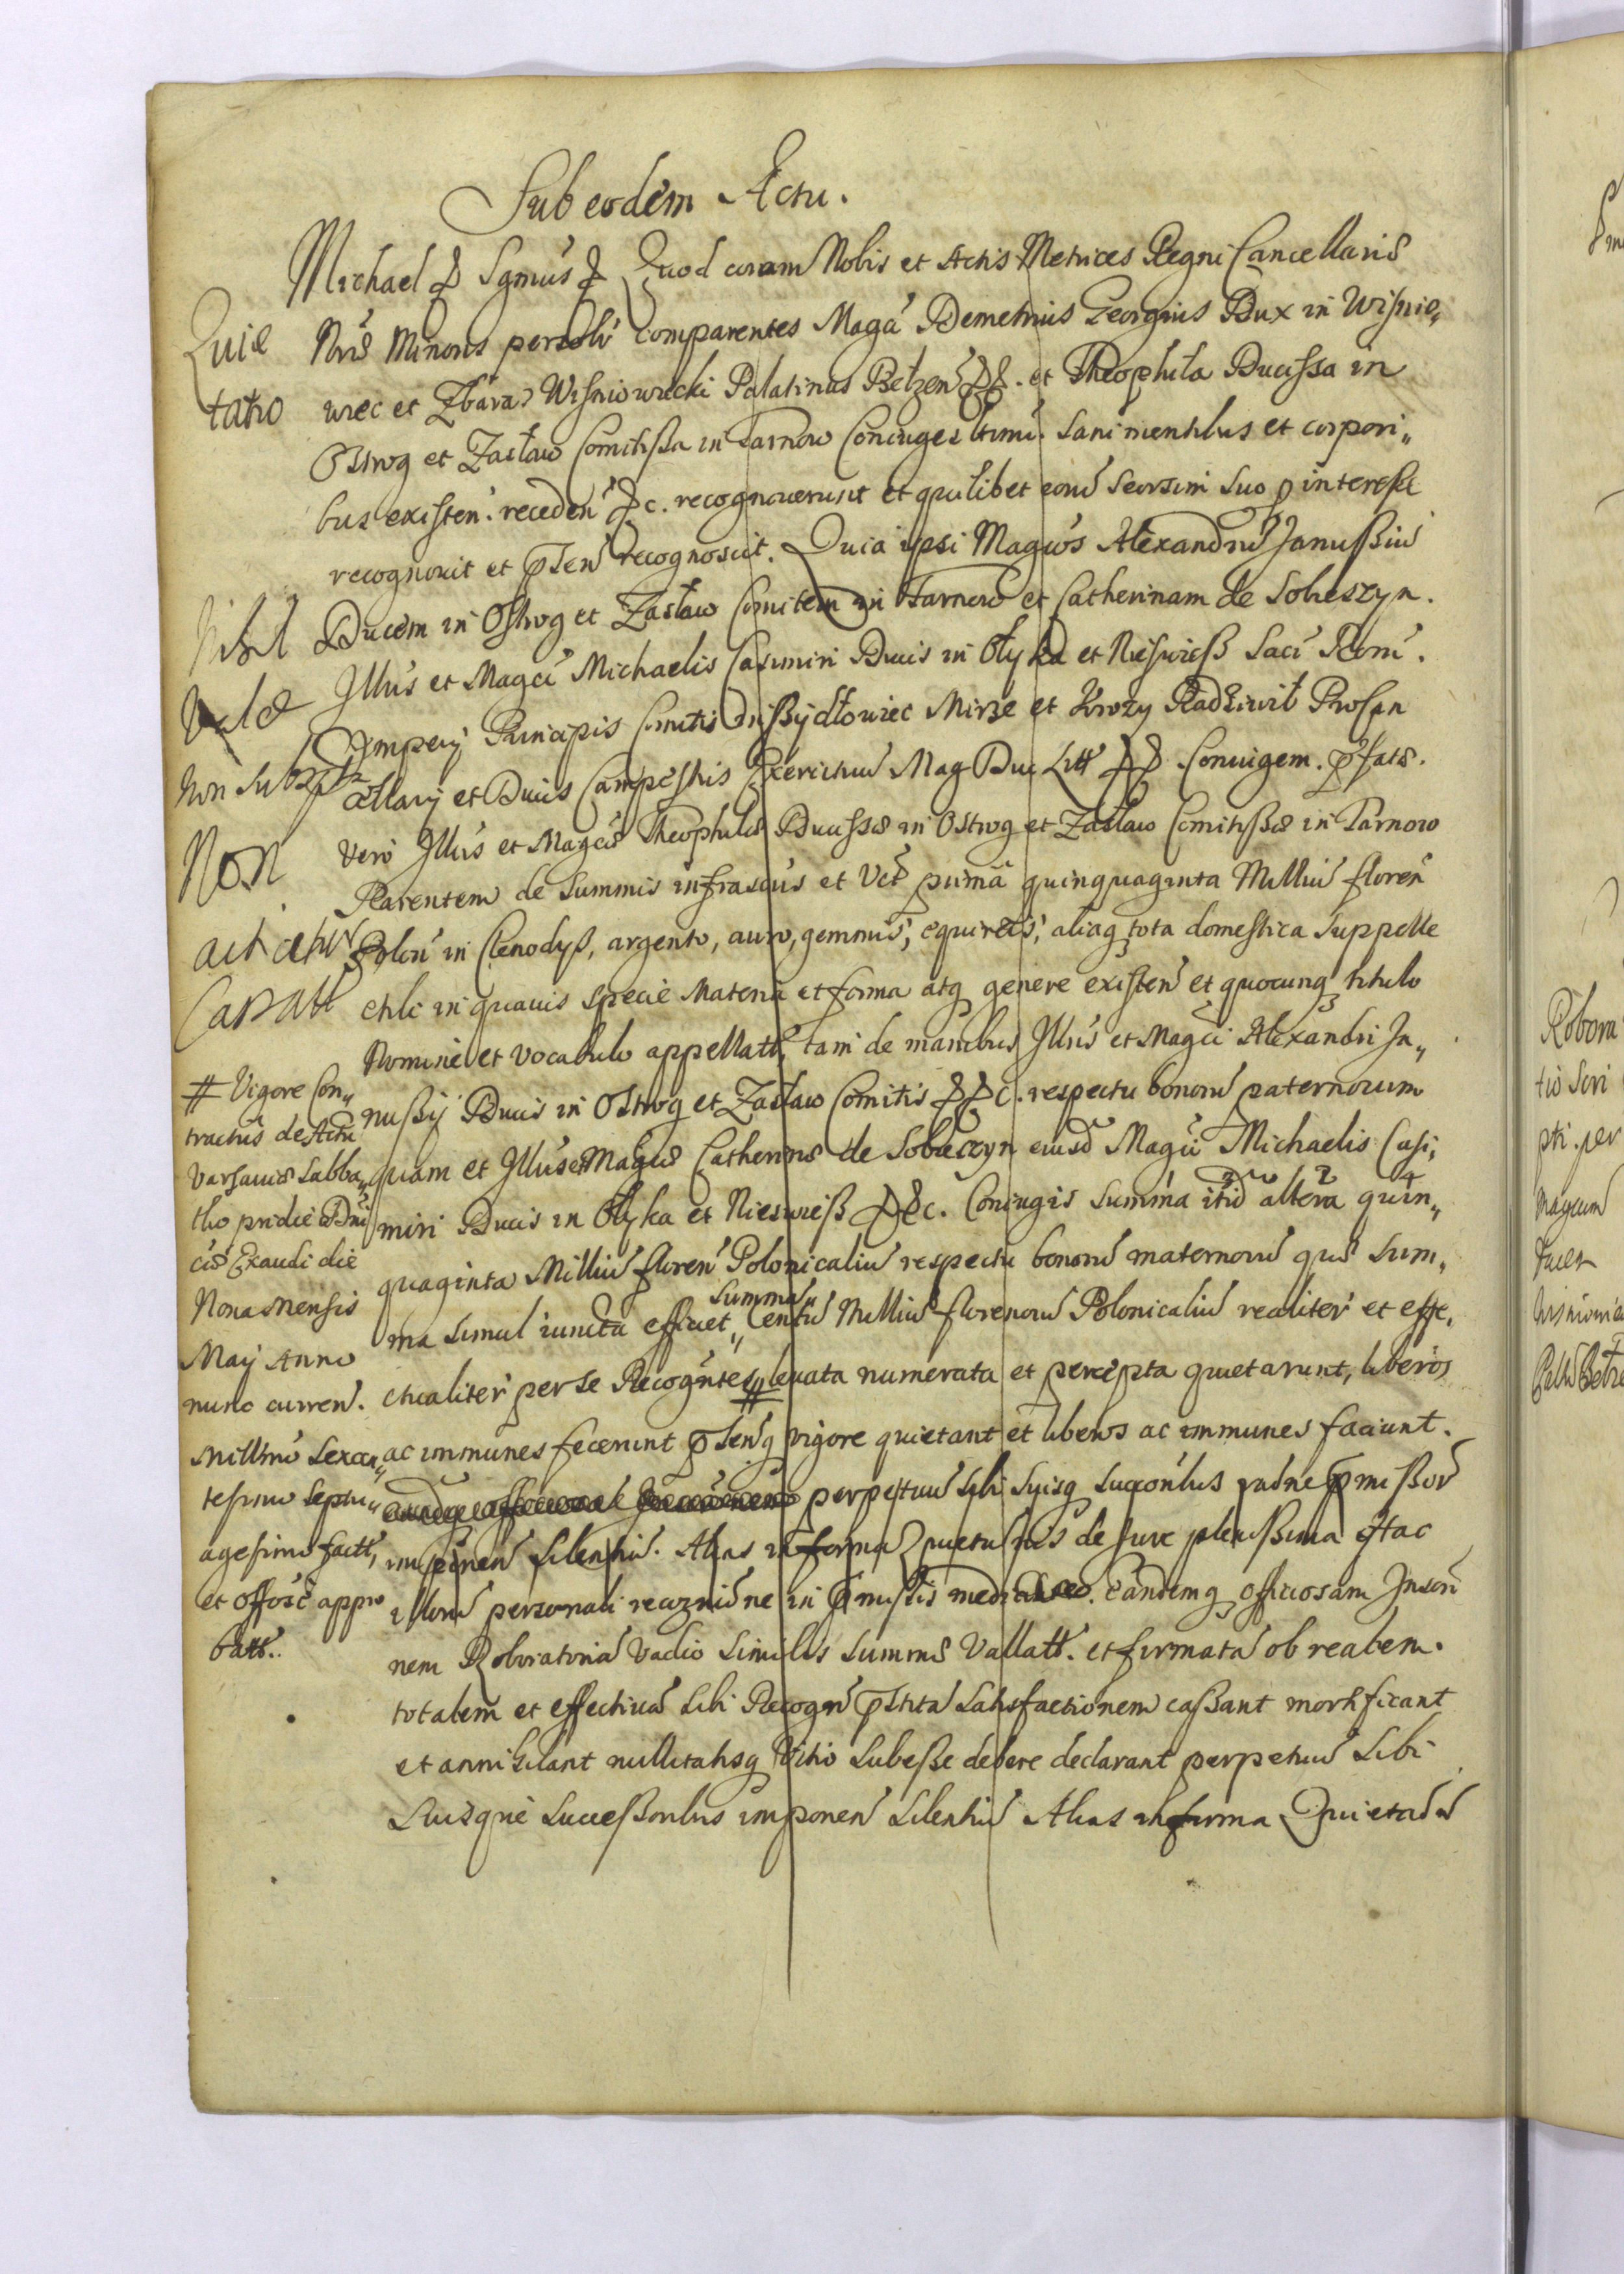 Sub eodem Actu.
Michael & Sgmûs & Quod coram Nobis et Actis Metrices Regni Cancellariæ
Quie
tatio
Nræ Minoris persolr comparentes Magci Demetrius Georgius Dux in Wisnio„
wiec et Zbaraz Wisniowiecki Palatinus Belzen &&. et Theophila Ducissa in
Ostrog et Zasław Comitissa in Tarnow Coniuges ltimi. Sani mentibus et corpori„
bus existen. receden &c. recognoverunt et quilibet eorũ seorsim suo interesse
recognovit et pñten recognoscit. Quia ipsi Magcos Alexandrũ Janussiũ
Ducem in Ostrog et Zasław Comitem in Tarnow et Catherinam de Sobieszyn.
Illris et Magci Michaelis Casimiri Ducis in Ołyka et Nieswiesz Saci Romi.
Imperij Principis Comitis in Szydłowiec Mirze et Krozy Radziwił Procan
cellarij et Ducis Campestris Exercituũ Mag Duc Litt && Coniugem. pfatæ.
Non
vero Illris et Magcæ Theophilæ Ducissæ in Ostrog et Zasław Comitissæ in Tarnow
Parentem de Summis infrascris et Vct prima quinquaginta Milliũ floren
Polon in Clenodys, argento, auro, gemmis, equireis, aliaq tota domestica suppelle
ctili in quavis specie Materia et forma atq genere existen et quocunq titulo
Nomine et vocabulo appellatt, tam de manibus Illris et Magci Alexandri Ja„
nussij Ducis in Ostrog et Zasław Comitis &&c. respectu bonorũ paternorum
quam et Illris et Magcæ Catherinæ de Sobieszyn eiusd Magci Michaelis Casi„
miri Ducis in Ołyka et Nieswiesz &&c. Coniugis summa itid altera quin„
quaginta Milliũ floren Polonicaliũ respectu bonorũ maternorũ quæ sum„
ma simul iuncta efficiet „ Summã „ Centũ Milliũ florenorũ Polonicaliũ realiter et effe„
ctualiter per se Recogntes # levata numerata et percepta quietarunt, liberos
ac immunes fecerunt pñtenq vigore quietant et liberos ac immunes faciunt.
perpetuũ sibi suisq succoribus rãone pmissor
imponen silentiũ. Alias in forma Quietãnis de Jure plenissima estac
illorũ personali recogniõne in pmissis mediante. Eandemq officiosam Inscri
nem Roboratoriã vadio similis summæ vallatt. et firmatã ob realem.
totalem et effectivã sibi Recogn pstita satisfactionem cassant mortificant
et annihilant nullitatisq Vitio subesse debere declarant perpetuũ sibi
suisque successoribus imponen silentiũ Alias in forma Quietãõs
# Vigore Con„
tractus de Actu
Varsaviæ Sabba„
tho pridie Dni
cæ Exaudi die
Nona mensis
Maij Anno
nunc curren.
Millmo Sexcen„
tesimo Septu„
agesimo factt,
et offose appro
batt.
Robora
tio Scri
pti. per
Magcum